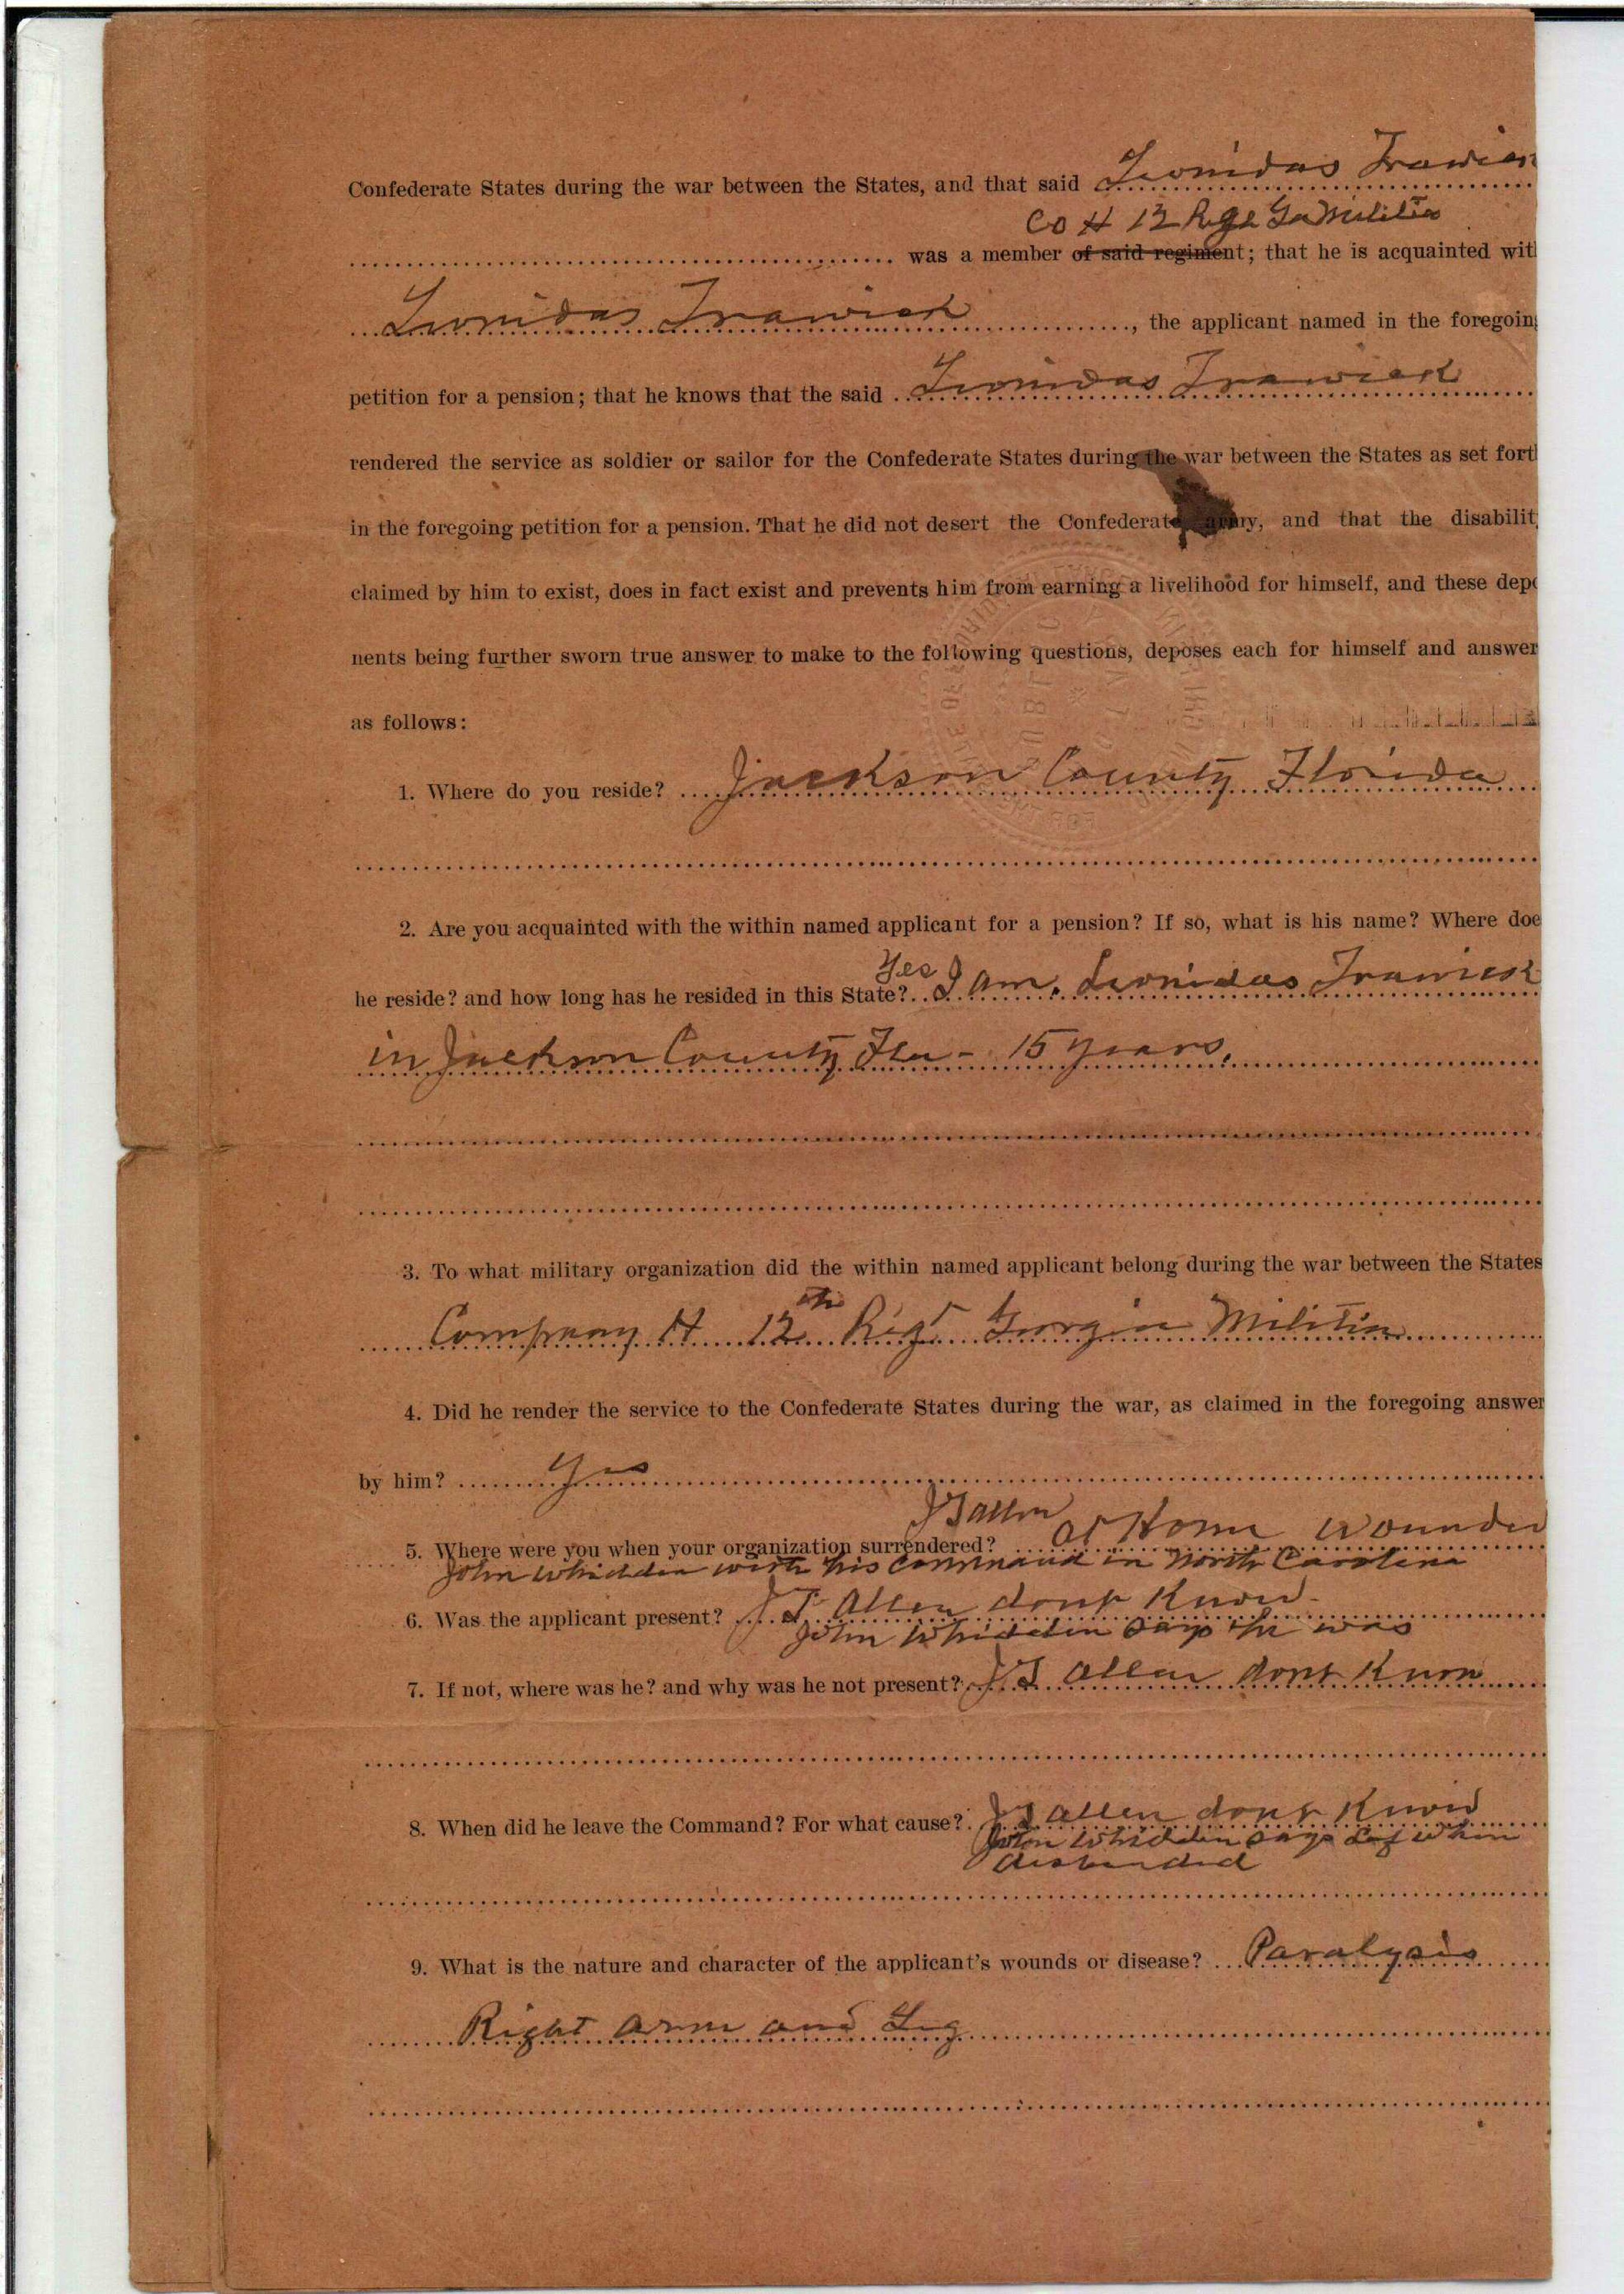 Confederate States during the war between the States, and that said Leonidas Trawick
Co H 12 Rgt Ga Militia
was a member of said regiment; that he is acquainted wit
Leonidas Trawick, the applicant named in the foregoin
petition for a pension; that he knows that the said Leonidas Trawick
rendered the service as soldier or sailor for the Confederate States during the war between the States as set fort
in the foregoing petition for a pension. That he did not desert the Confederate army, and that the disabilit
claimed by him to exist, does in fact exist and prevents him from earning a livelihood for himself, and these depo
nents being further sworn true answer to make to the following questions, deposes each for himself and answer
as follows:
1. Where do you reside? Jackson County Florida
2. Are you acquainted with the within named applicant for a pension? If so, what is his name? Where doe
he reside? and how long has he resided in this State? Yes I am. Leonidas Trawick
in Jackson County Fla - 15 years.
3. To what military organization did the within named applicant belong during the war between the States
Company H 12th Regt Georgia Militia
4. Did he render the service to the Confederate States during the war, as claimed in the foregoing answer
by him? Yes
5. Where were you when your organization surrendered? J T Allen at Home wounded
John Whidden with his command in North Carolina
6. Was the applicant present? J T Allen dont Know
John Whidden says he was
7. If not, where was he? and why was he not present? J T Allen dont Know
8. When did he leave the Command? For what cause? J T Allen dont Know
John Whidden says Lef when
disbanded
9. What is the nature and character of the applicant's wounds or disease? Paralysis
Right arm and Leg